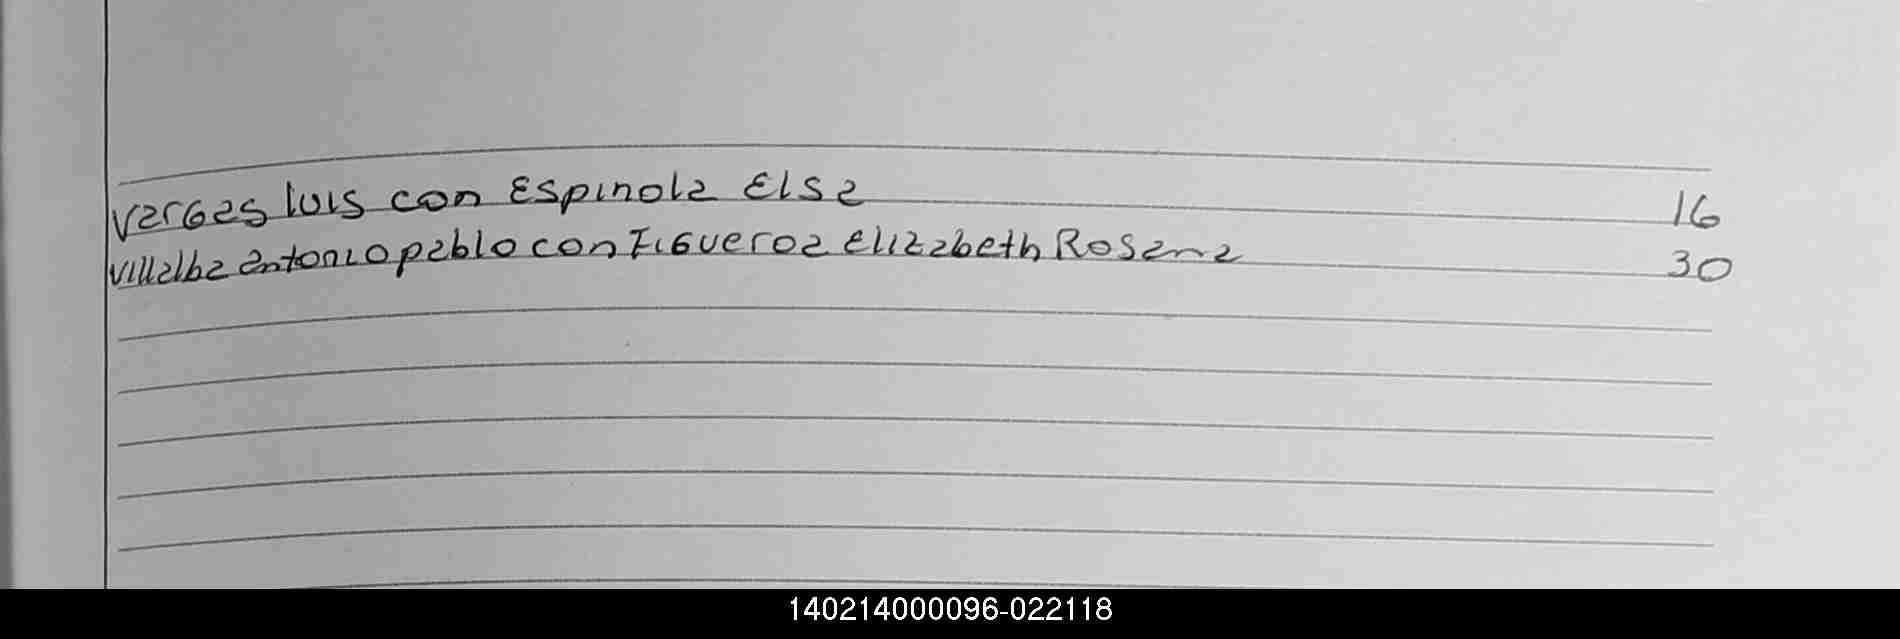 Vargas Luis con Espinola Elsa 16
Villalba antonio pablo con Figueroa Elizabeth Rosana 30
140214000096-022118